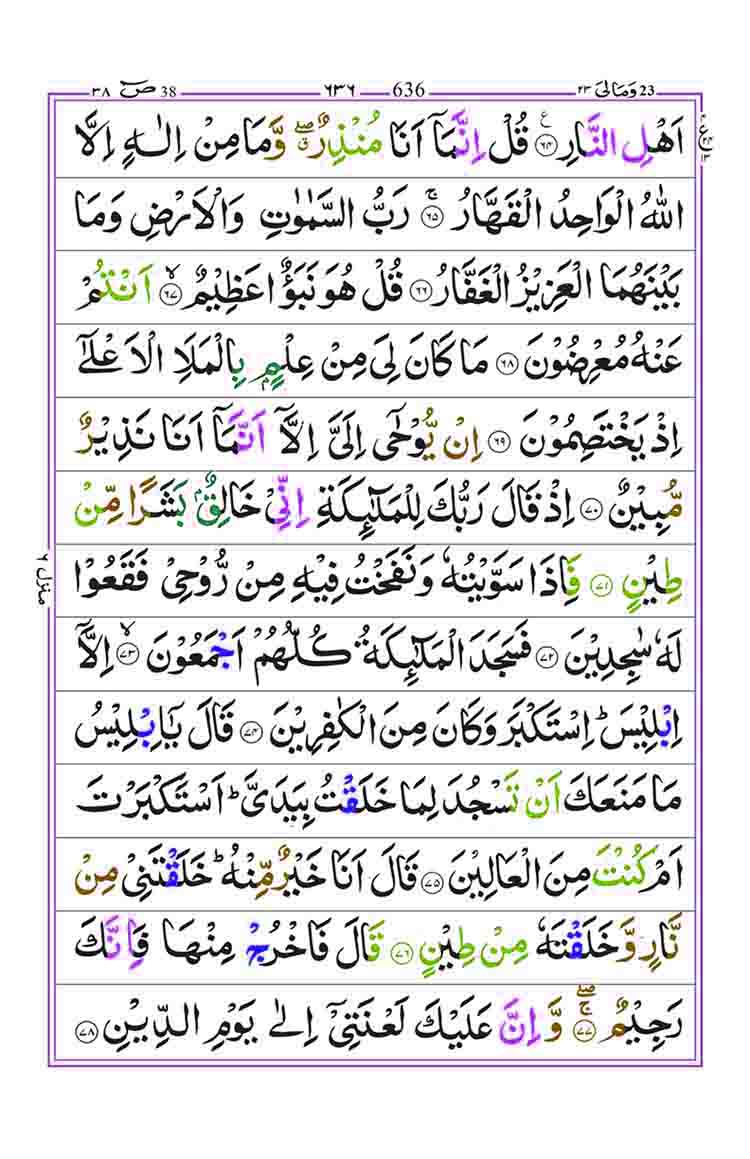 ٣٨ صٓ 38 ٦٣٦ 636 ٢٣ وَمَالِیَ 23
اَهْلِ النَّارِ ﴿٦٤﴾ ع قُلْ اِنَّمَاۤ اَنَا مُنْذِرٌ ۖۗ وَّمَا مِنْ اِلٰهٍ اِلَّا
اللّٰهُ الْوَاحِدُ الْقَهَّارُ ﴿٦٥﴾ ۚ رَبُّ السَّمٰوٰتِ وَالْاَرْضِ وَمَا
بَيْنَهُمَا الْعَزِيْزُ الْغَفَّارُ ﴿٦٦﴾ قُلْ هُوَ نَبَؤٌا عَظِيْمٌ ﴿٦٧﴾ ۙ اَنْتُمْ
عَنْهُ مُعْرِضُوْنَ ﴿٦٨﴾ مَا كَانَ لِيَ مِنْ عِلْمٍۭ بِالْمَلَاِ الْاَعْلٰۤى
اِذْ يَخْتَصِمُوْنَ ﴿٦٩﴾ اِنْ يُّوْحٰۤى اِلَيَّ اِلَّاۤ اَنَّمَاۤ اَنَا نَذِيْرٌ
مُّبِيْنٌ ﴿٧٠﴾ اِذْ قَالَ رَبُّكَ لِلْمَلٰٓئِكَةِ اِنِّيْ خَالِقٌۢ بَشَرًا مِّنْ
طِيْنٍ ﴿٧١﴾ فَاِذَا سَوَّيْتُهٗ وَنَفَخْتُ فِيْهِ مِنْ رُّوْحِيْ فَقَعُوْا
لَهٗ سٰجِدِيْنَ ﴿٧٢﴾ فَسَجَدَ الْمَلٰٓئِكَةُ كُلُّهُمْ اَجْمَعُوْنَ ﴿٧٣﴾ ۙ اِلَّاۤ
اِبْلِيْسَ ؕ اِسْتَكْبَرَ وَكَانَ مِنَ الْكٰفِرِيْنَ ﴿٧٤﴾ قَالَ يٰۤاِبْلِيْسُ
مَا مَنَعَكَ اَنْ تَسْجُدَ لِمَا خَلَقْتُ بِيَدَيَّ ؕ اَسْتَكْبَرْتَ
اَمْ كُنْتَ مِنَ الْعَالِيْنَ ﴿٧٥﴾ قَالَ اَنَا خَيْرٌ مِّنْهُ ؕ خَلَقْتَنِيْ مِنْ
نَّارٍ وَّخَلَقْتَهٗ مِنْ طِيْنٍ ﴿٧٦﴾ قَالَ فَاخْرُجْ مِنْهَا فَاِنَّكَ
رَجِيْمٌ ﴿٧٧﴾ ۖۚ وَّاِنَّ عَلَيْكَ لَعْنَتِيْۤ اِلٰى يَوْمِ الدِّيْنِ ﴿٧٨﴾
منزل ٦